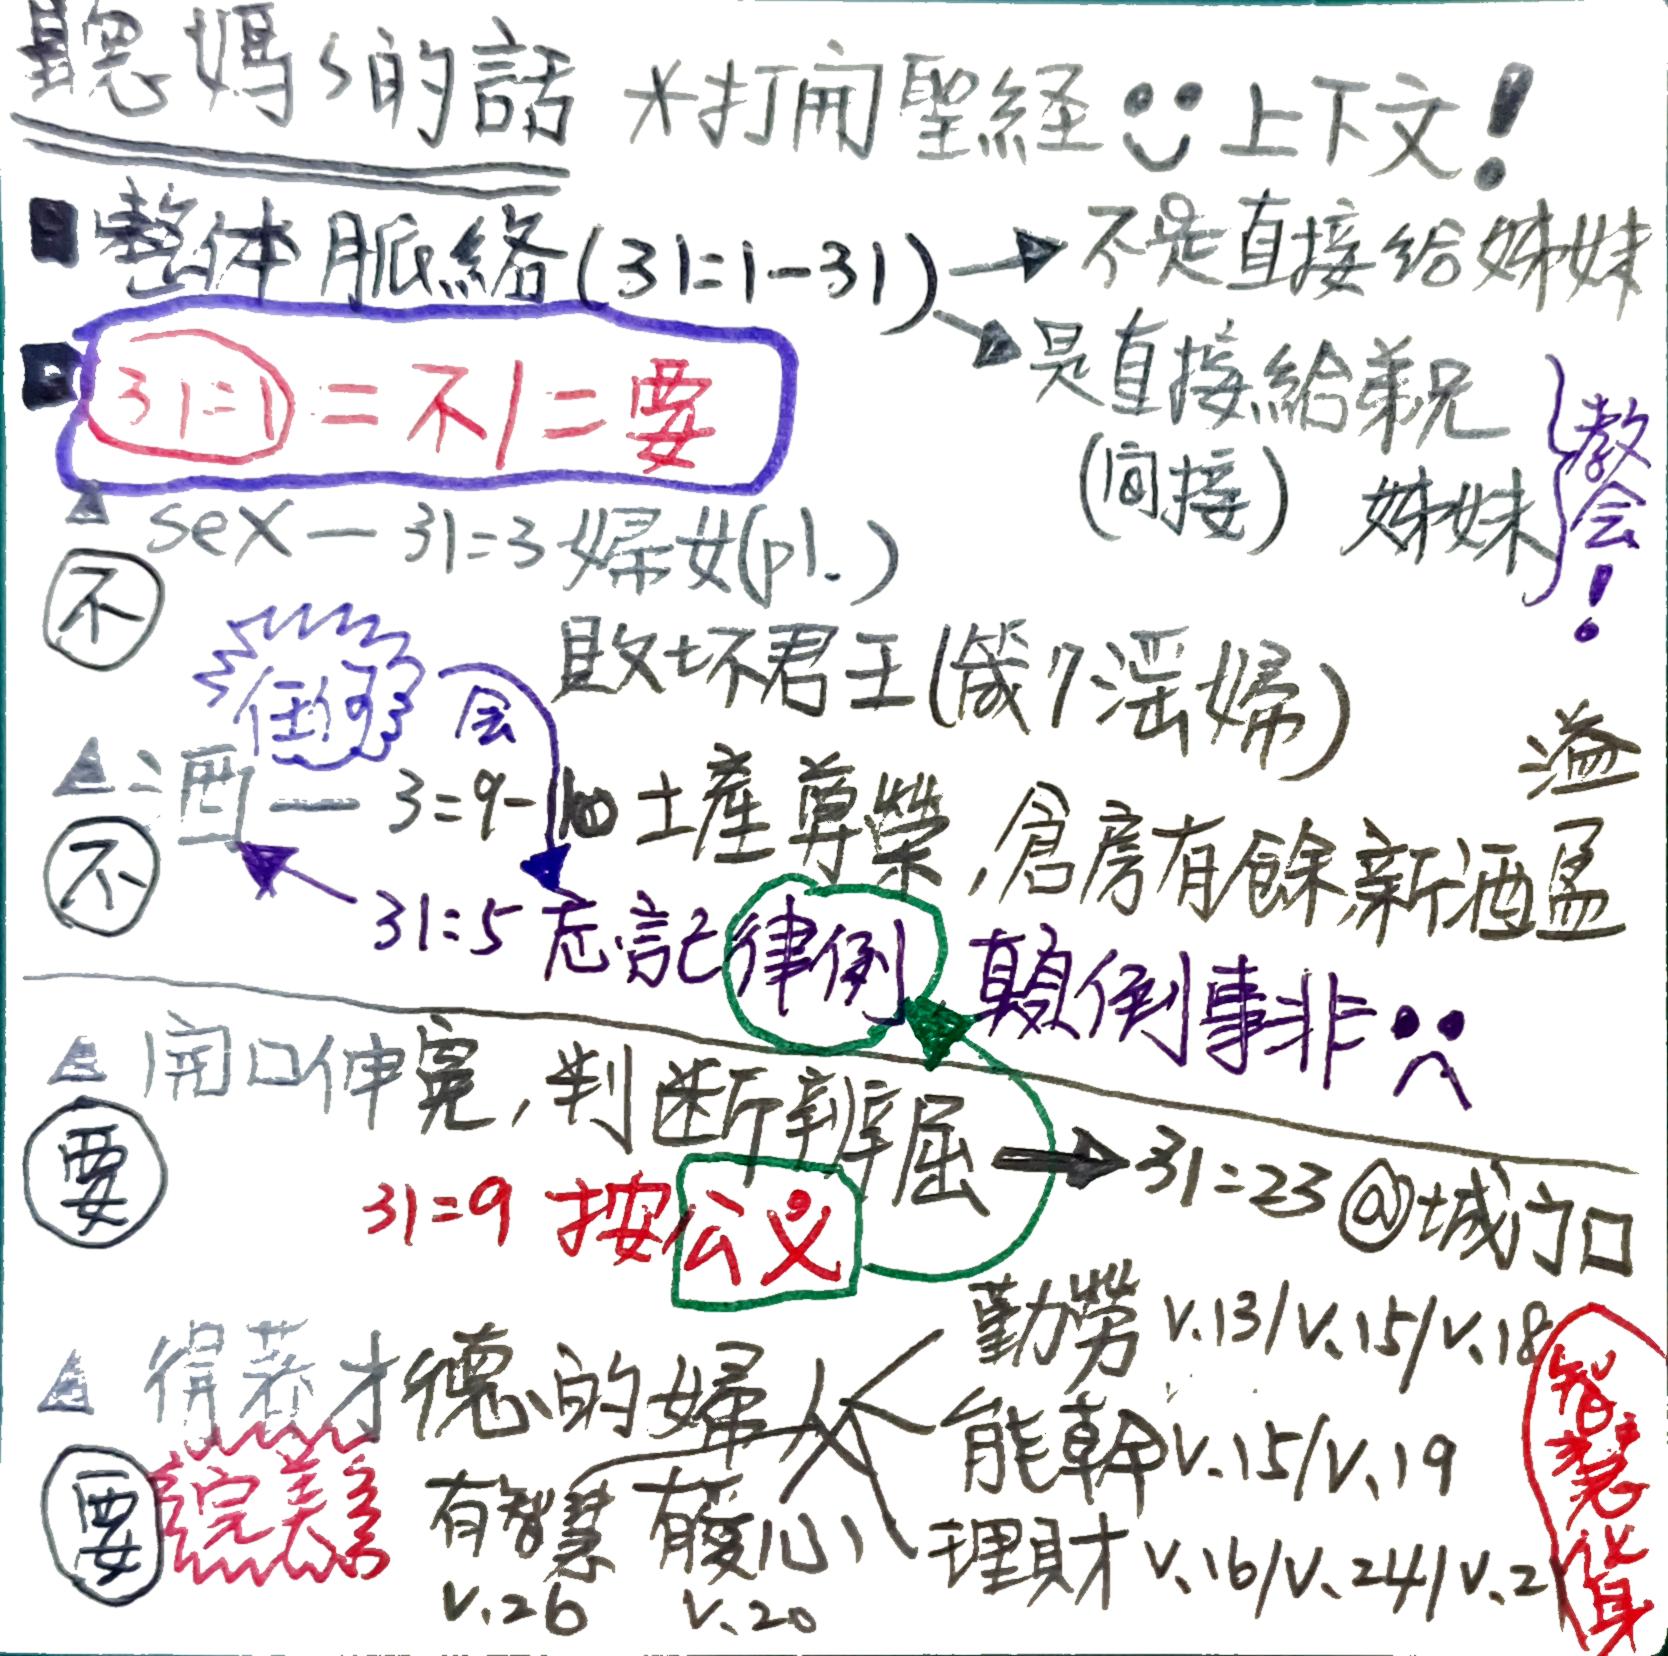 聽媽ㄑ的話 *打開聖経 上下文!
整体脈絡(31=1-31) → 不是直接給姊妹
→ 是直接給弟兄
(间接) 姊妹
教会!
31=1 = 不/=要
sex — 31=3 婦女(pl.)
不
敗坏君王(箴7淫婦)
任何 会
酒 — 3=9-10 土產尊榮,倉房有餘,新酒盈
溢
不
31=5 忘記律例 顛倒事非
開口伸冤,判断辨屈 → 31=23 @城门口
要
31=9 按公义
得著才德的婦人
勤勞 v.13/v.15/v.18
能幹 v.15/v.19
理財 v.16/v.24/v.2
要 完美 有智慧 有愛心
v.26 v.20
智慧化身